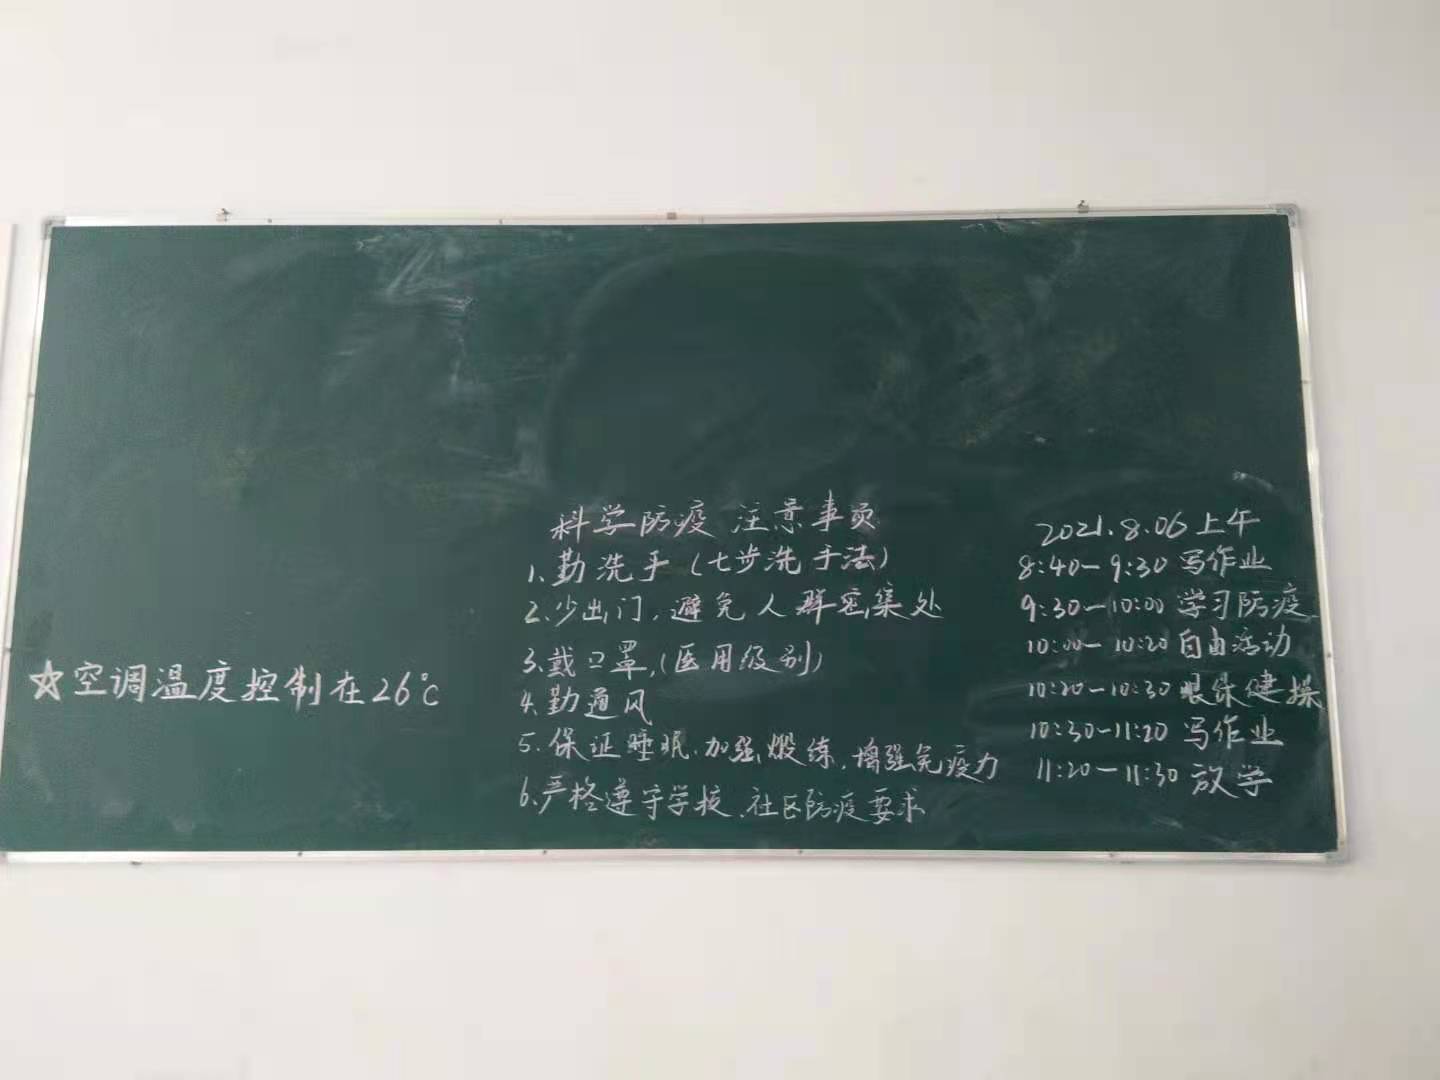 ★空调温度控制在26℃
科学防疫 注意事项
1.勤洗手(七步洗手法)
2.少出门,避免人群密集处
3.戴口罩,(医用级别)
4.勤通风
5.保证睡眠,加强煅练,增强免疫力
6.严格遵守学校、社区防疫要求
2021.8.06上午
8:40-9:30 写作业
9:30-10:00 学习防疫
10:00-10:20 自由活动
10:20-10:30 眼保健操
10:30-11:20 写作业
11:20-11:30 放学